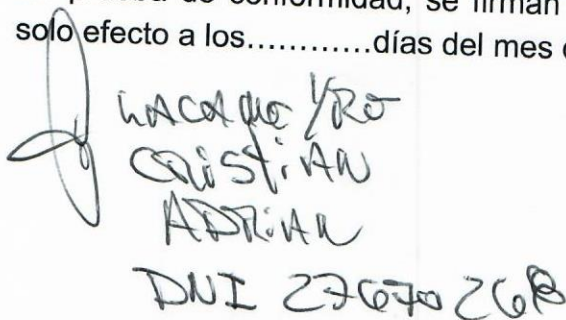 conformidad, se firman
solo efecto a los............días del mes
CRiSTiAN
ADRiAN
DNI 27670268